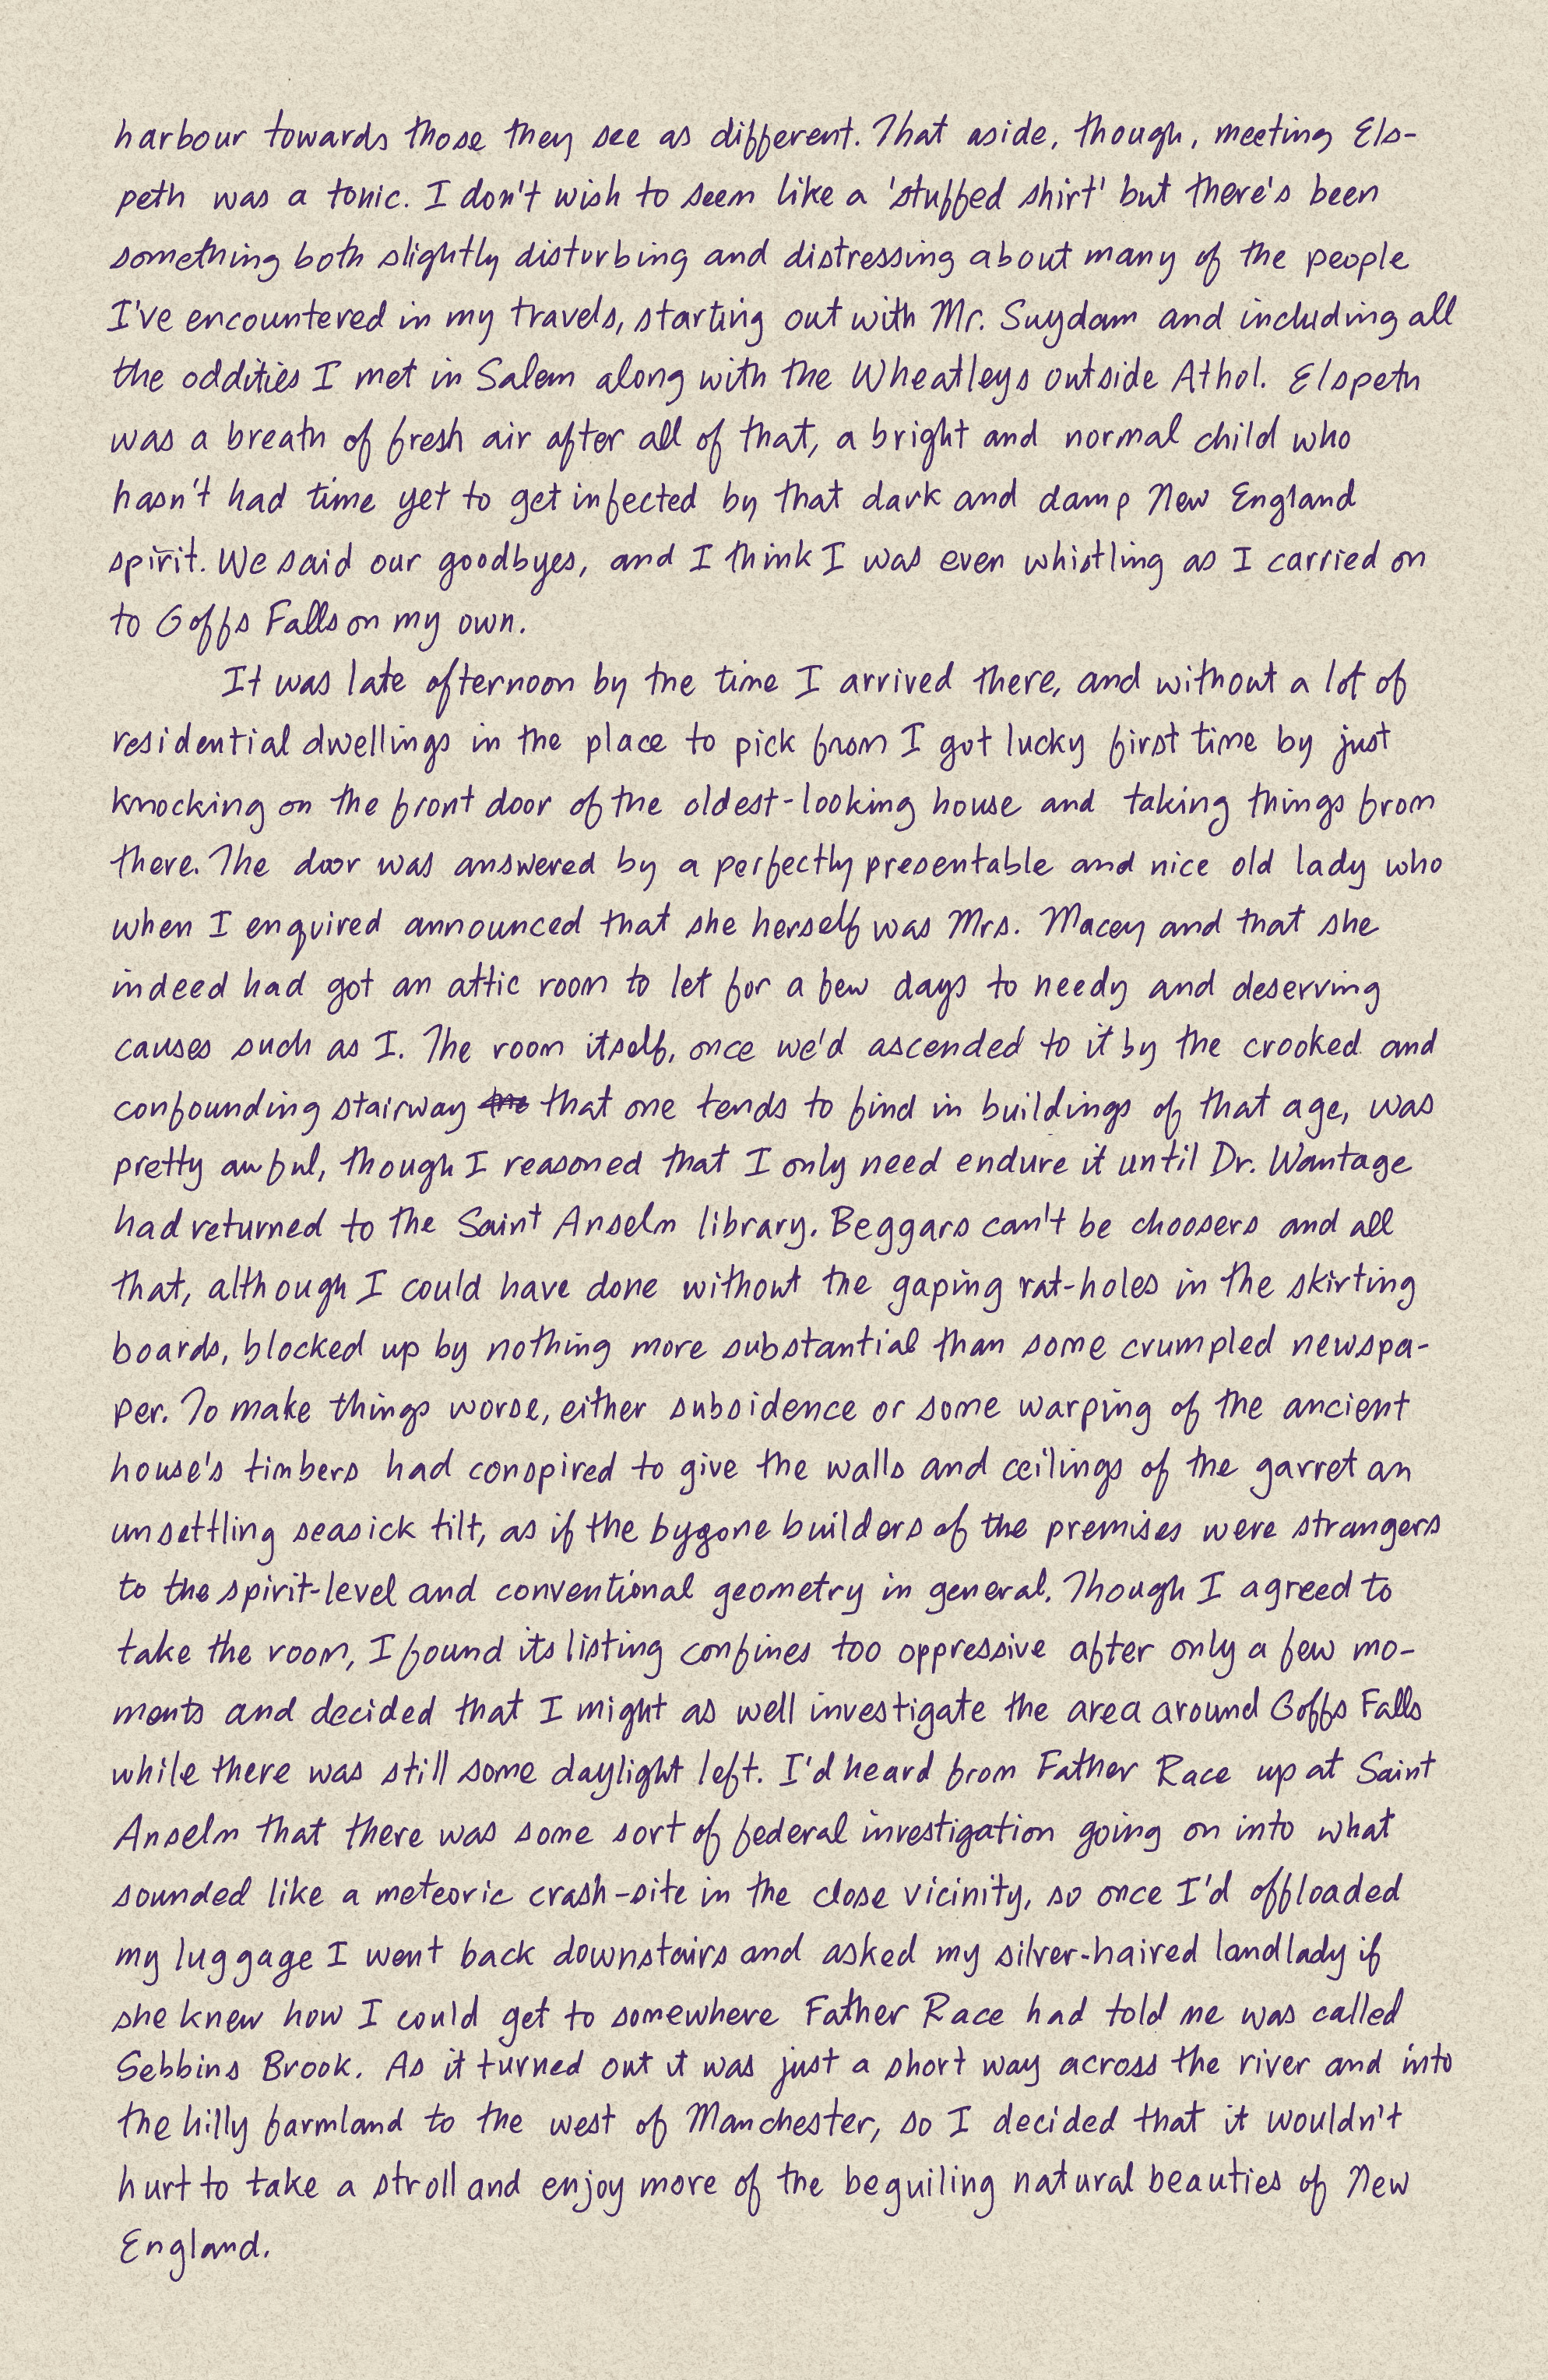 harbour towards those they see as different. That aside, though, meeting Els-
peth was a tonic. I don't wish to seem like a 'stuffed shirt' but there's been
something both slightly disturbing and distressing about many of the people
I've encountered in my travels, starting out with Mr. Suydam and including all
the oddities I met in Salem along with the Wheatleys outside Athol. Elspeth
was a breath of fresh air after all of that, a bright and normal child who
hasn't had time yet to get infected by that dark and damp New England
spirit. We said our goodbyes, and I think I was even whistling as I carried on
to Goffs Falls on my own.
It was late afternoon by the time I arrived there, and without a lot of
residential dwellings in the place to pick from I got lucky first time by just
knocking on the front door of the oldest-looking house and taking things from
there. The door was answered by a perfectly presentable and nice old lady who
when I enquired announced that she herself was Mrs. Macey and that she
indeed had got an attic room to let for a few days to needy and deserving
causes such as I. The room itself, once we'd ascended to it by the crooked and
confounding stairway that one tends to find in buildings of that age, was
pretty awful, though I reasoned that I only need endure it until Dr. Wantage
had returned to the Saint Anselm library. Beggars can't be choosers and all
that, although I could have done without the gaping rat-holes in the skirting
boards, blocked up by nothing more substantial than some crumpled newspa-
per. To make things worse, either subsidence or some warping of the ancient
house's timbers had conspired to give the walls and ceilings of the garret an
unsettling seasick tilt, as if the bygone builders of the premises were strangers
to the spirit-level and conventional geometry in general. Though I agreed to
take the room, I found its listing confines too oppressive after only a few mo-
ments and decided that I might as well investigate the area around Goffs Falls
while there was still some daylight left. I'd heard from Father Race up at Saint
Anselm that there was some sort of federal investigation going on into what
sounded like a meteoric crash-site in the close vicinity, so once I'd offloaded
my luggage I went back downstairs and asked my silver-haired landlady if
she knew how I could get to somewhere Father Race had told me was called
Sebbins Brook. As it turned out it was just a short way across the river and into
the hilly farmland to the west of Manchester, so I decided that it wouldn't
hurt to take a stroll and enjoy more of the beguiling natural beauties of New
England.